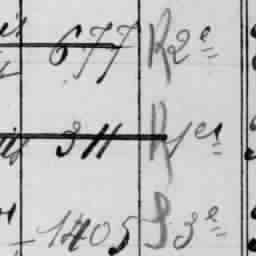 677 R2e
311 R1er
1405 S3e